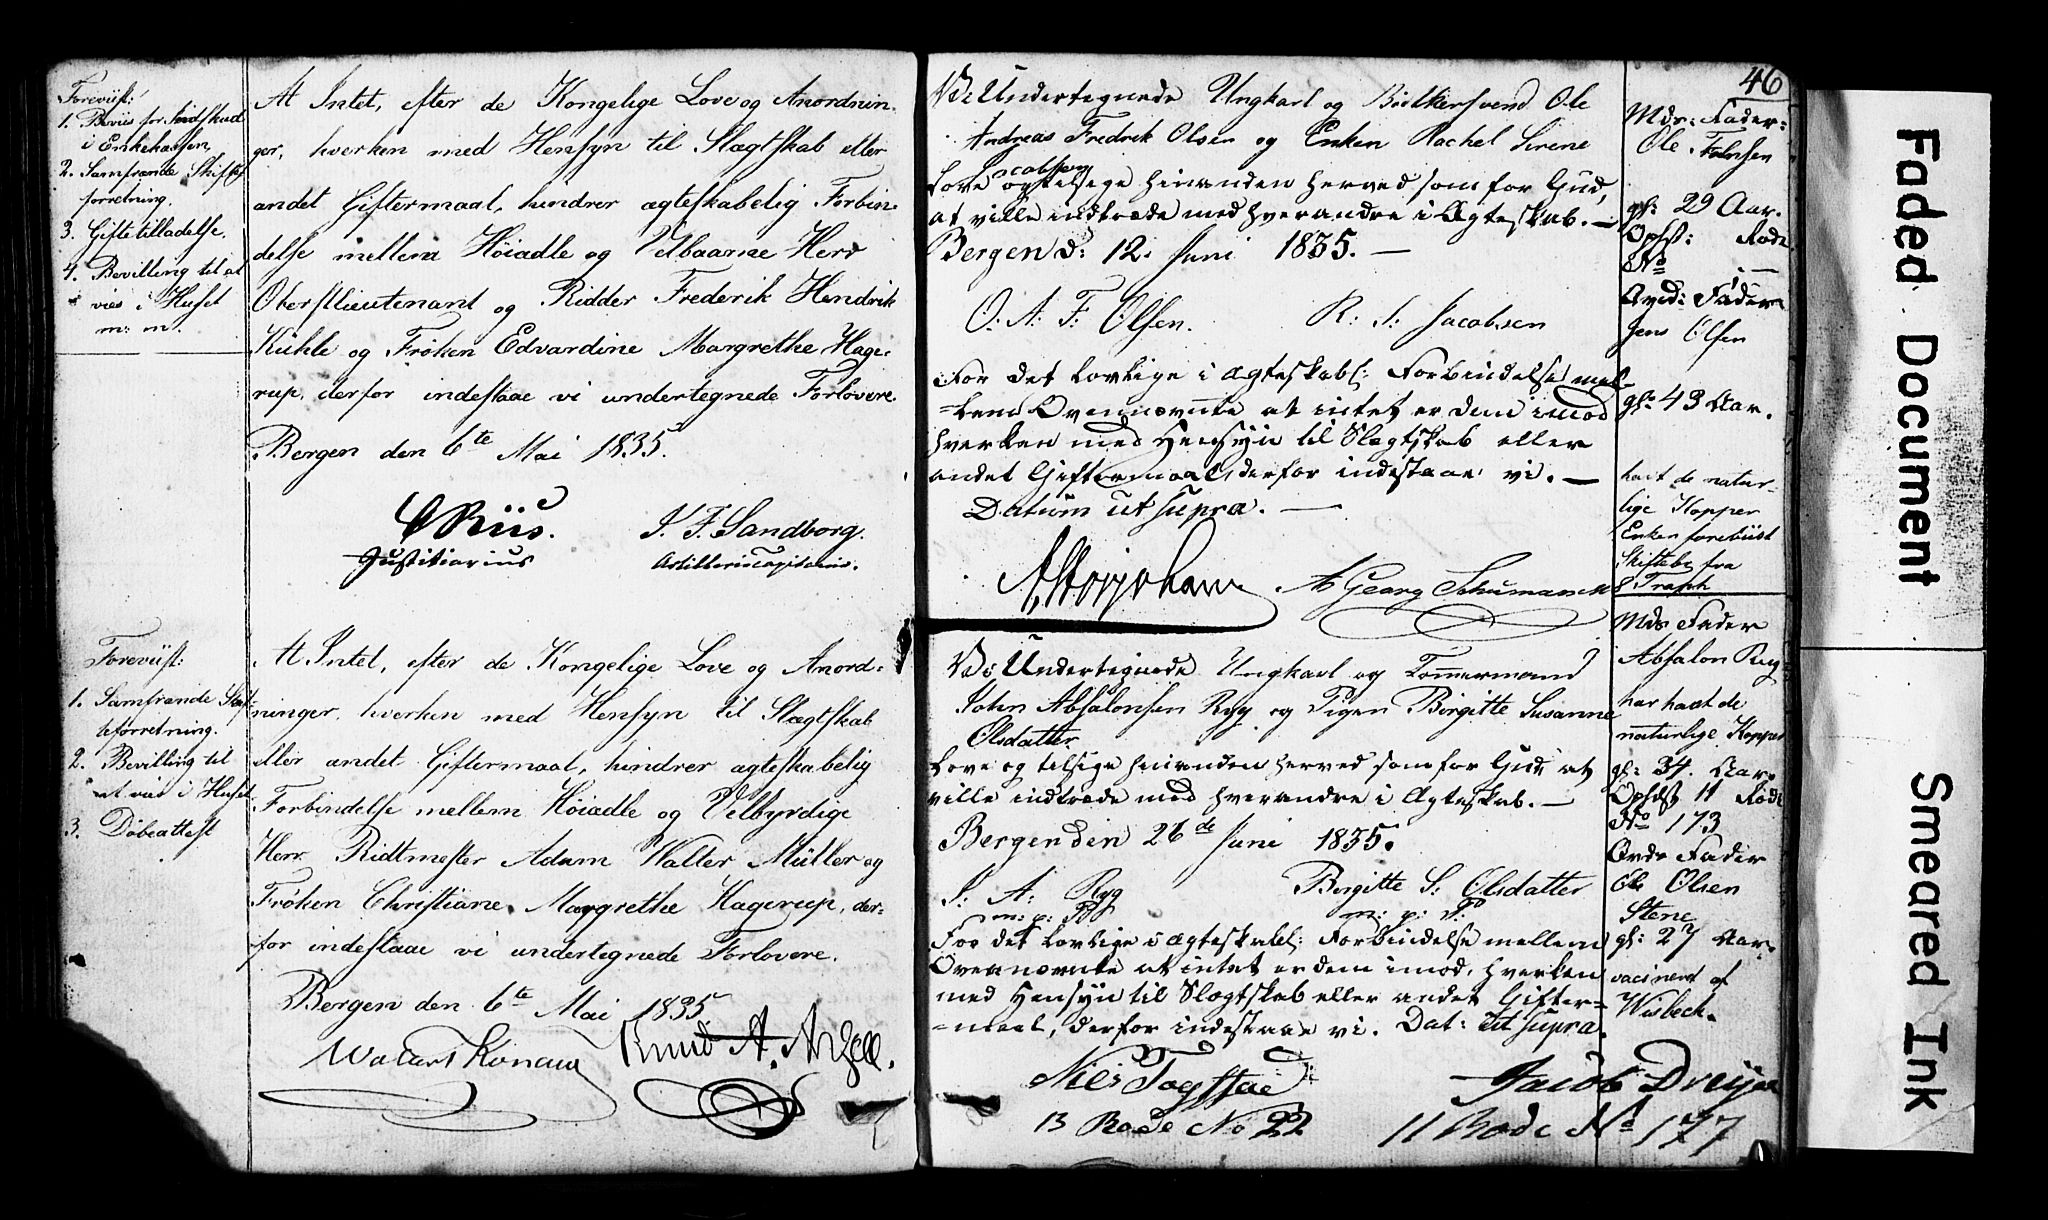 Foreviist:
1. Beviis for Indskud
i Enkekassen,
2. Samfrænde Skifte
forretning.
3. Giftetilladelse.
4. Bevilling til at
vies i Huset
m: m.
At Intet, efter de Kongelige Love og Anordnin-
ger, hverken med Hensyn til Slægtskab eller
andet Giftermaal, hindrer ægteskabelig Forbin-
delse mellem Höiædle og Velbaarne Herr
Oberstlieutenant og Ridder Frederik Hendrik
Kühle og Frøken Edvardine Margrethe Hage-
rup, derfor indestaae vi undertegnede Forlovere.
Bergen den 6te Mai 1835.
CRiis. J. F. Sandborg.
Justitiarius Artilleriecapitain.
Foreviist:
1. Samfrænde Skif-
teforretning.
2. Bevilling til
at vies i Huset
3. Döbeattest
At Intet, efter de Kongelige Love og Anord-
ninger, hverken med Hensyn til Slægtskab
eller andet Giftermaal, hindrer ægteskabelig
Forbindelse mellem Höiædle og Velbyrdige
Herr Ridtmester Adam Walter Müller og
Frøken Christiane Margrethe Hagerup, der-
for indestaae vi undertegnede Forlovere.
Bergen den 6te Mai 1835.
Wollert Konow Knud A.
46
Vi Undertegnede Ungkarl og Bödkersvend Ole
Andreas Fredrik Olsen og Enken Rachel Sirene
Jacobsen
Love og tilsige hinanden herved som for Gud,
at ville indtræde med hverandre i Ægteskab. —
Bergen d: 12. Juni 1835. —
O: A: F: Olsen. R: S: Jacobsen
For det lovlige i ægteskabl: Forbindelse mel-
=lem Ovennævnte at intet er dem imod
hverken med Hensyn til Slægtskab eller
andet Giftermaal, derfor indestaae vi. —
Datum ut supra. —
Georg Schumann
Mds: Fader:
Ole
gl: 29 Aar.
Opst: Rode
No
Qvd: Fader
Jens Olsen
gl: 43 Aar.
havt de natur-
lige Kopper
Enken foreviist
Skiftebr fra
Mds Fader
Absalon Ryg
har havt de
naturlige Kopper
gl: 34. Aar
Opholdst 11 Rode
No 173
Qvds Fader
Ole Olsen
Stene
gl: 27 Aar.
vacinerd af
Wisbech.
Vi Undertegnede Ungkarl og Tömmermand
John Absalonsen Ryg og Pigen Birgitte Susanne
Olsdatter
Love og tilsige hinanden herved som for Gud at
ville indtræde med hverandre i Ægteskab. —
Bergen den 26de Juni 1835.
J: A: Ryg Birgitte S: Olsdatter
m: p: P: m: p: P:
For det lovlige i ægteskabl: Forbindelse mellem
Ovennævnte at intet er dem imod, hverken
med Hensyn til Slægtskab eller andet Gifter-
=maal, derfor indestaae vi. Dat: ut supra.
Niels Jacob Dreyer
13 Rode No 22 11 Rode No 177
Faded Document
Smeared Ink